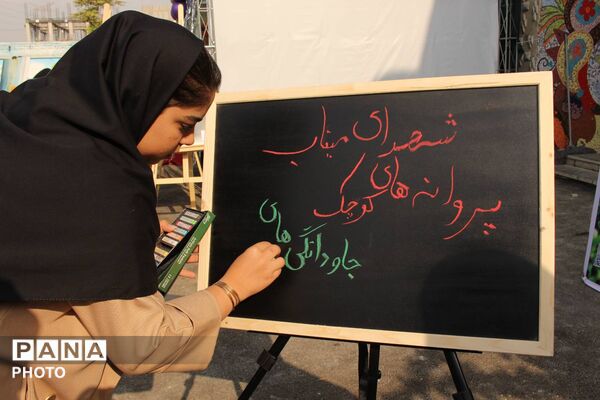 شهدای میناب
پروانه های کوچک
جاودانگی های
PANA
PHOTO